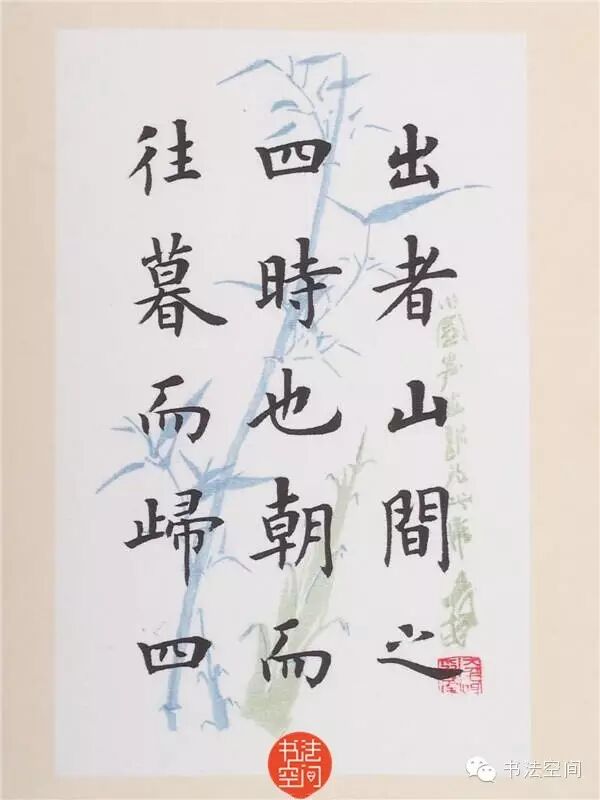 出者山間之
四時也朝而
往暮而歸四
书法
空间
书法空间